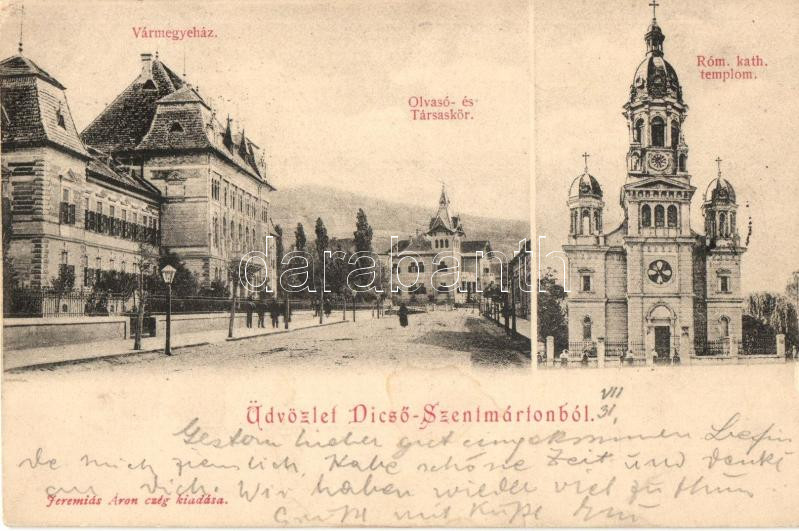 Vármegyeház.
Olvasó- és
Társaskör.
Róm. kath.
templom.
darabanth.com
Üdvözlet Dicső-Szentmártonból.
VII
31.
Gestern hieber gut eingekommen
De mich ziemlich, Habe schöne Zeit und denke
an Dich. Wir haben wieder viel zu thun
Gruß mit Kuß
Jeremiás Áron czég kiadása.